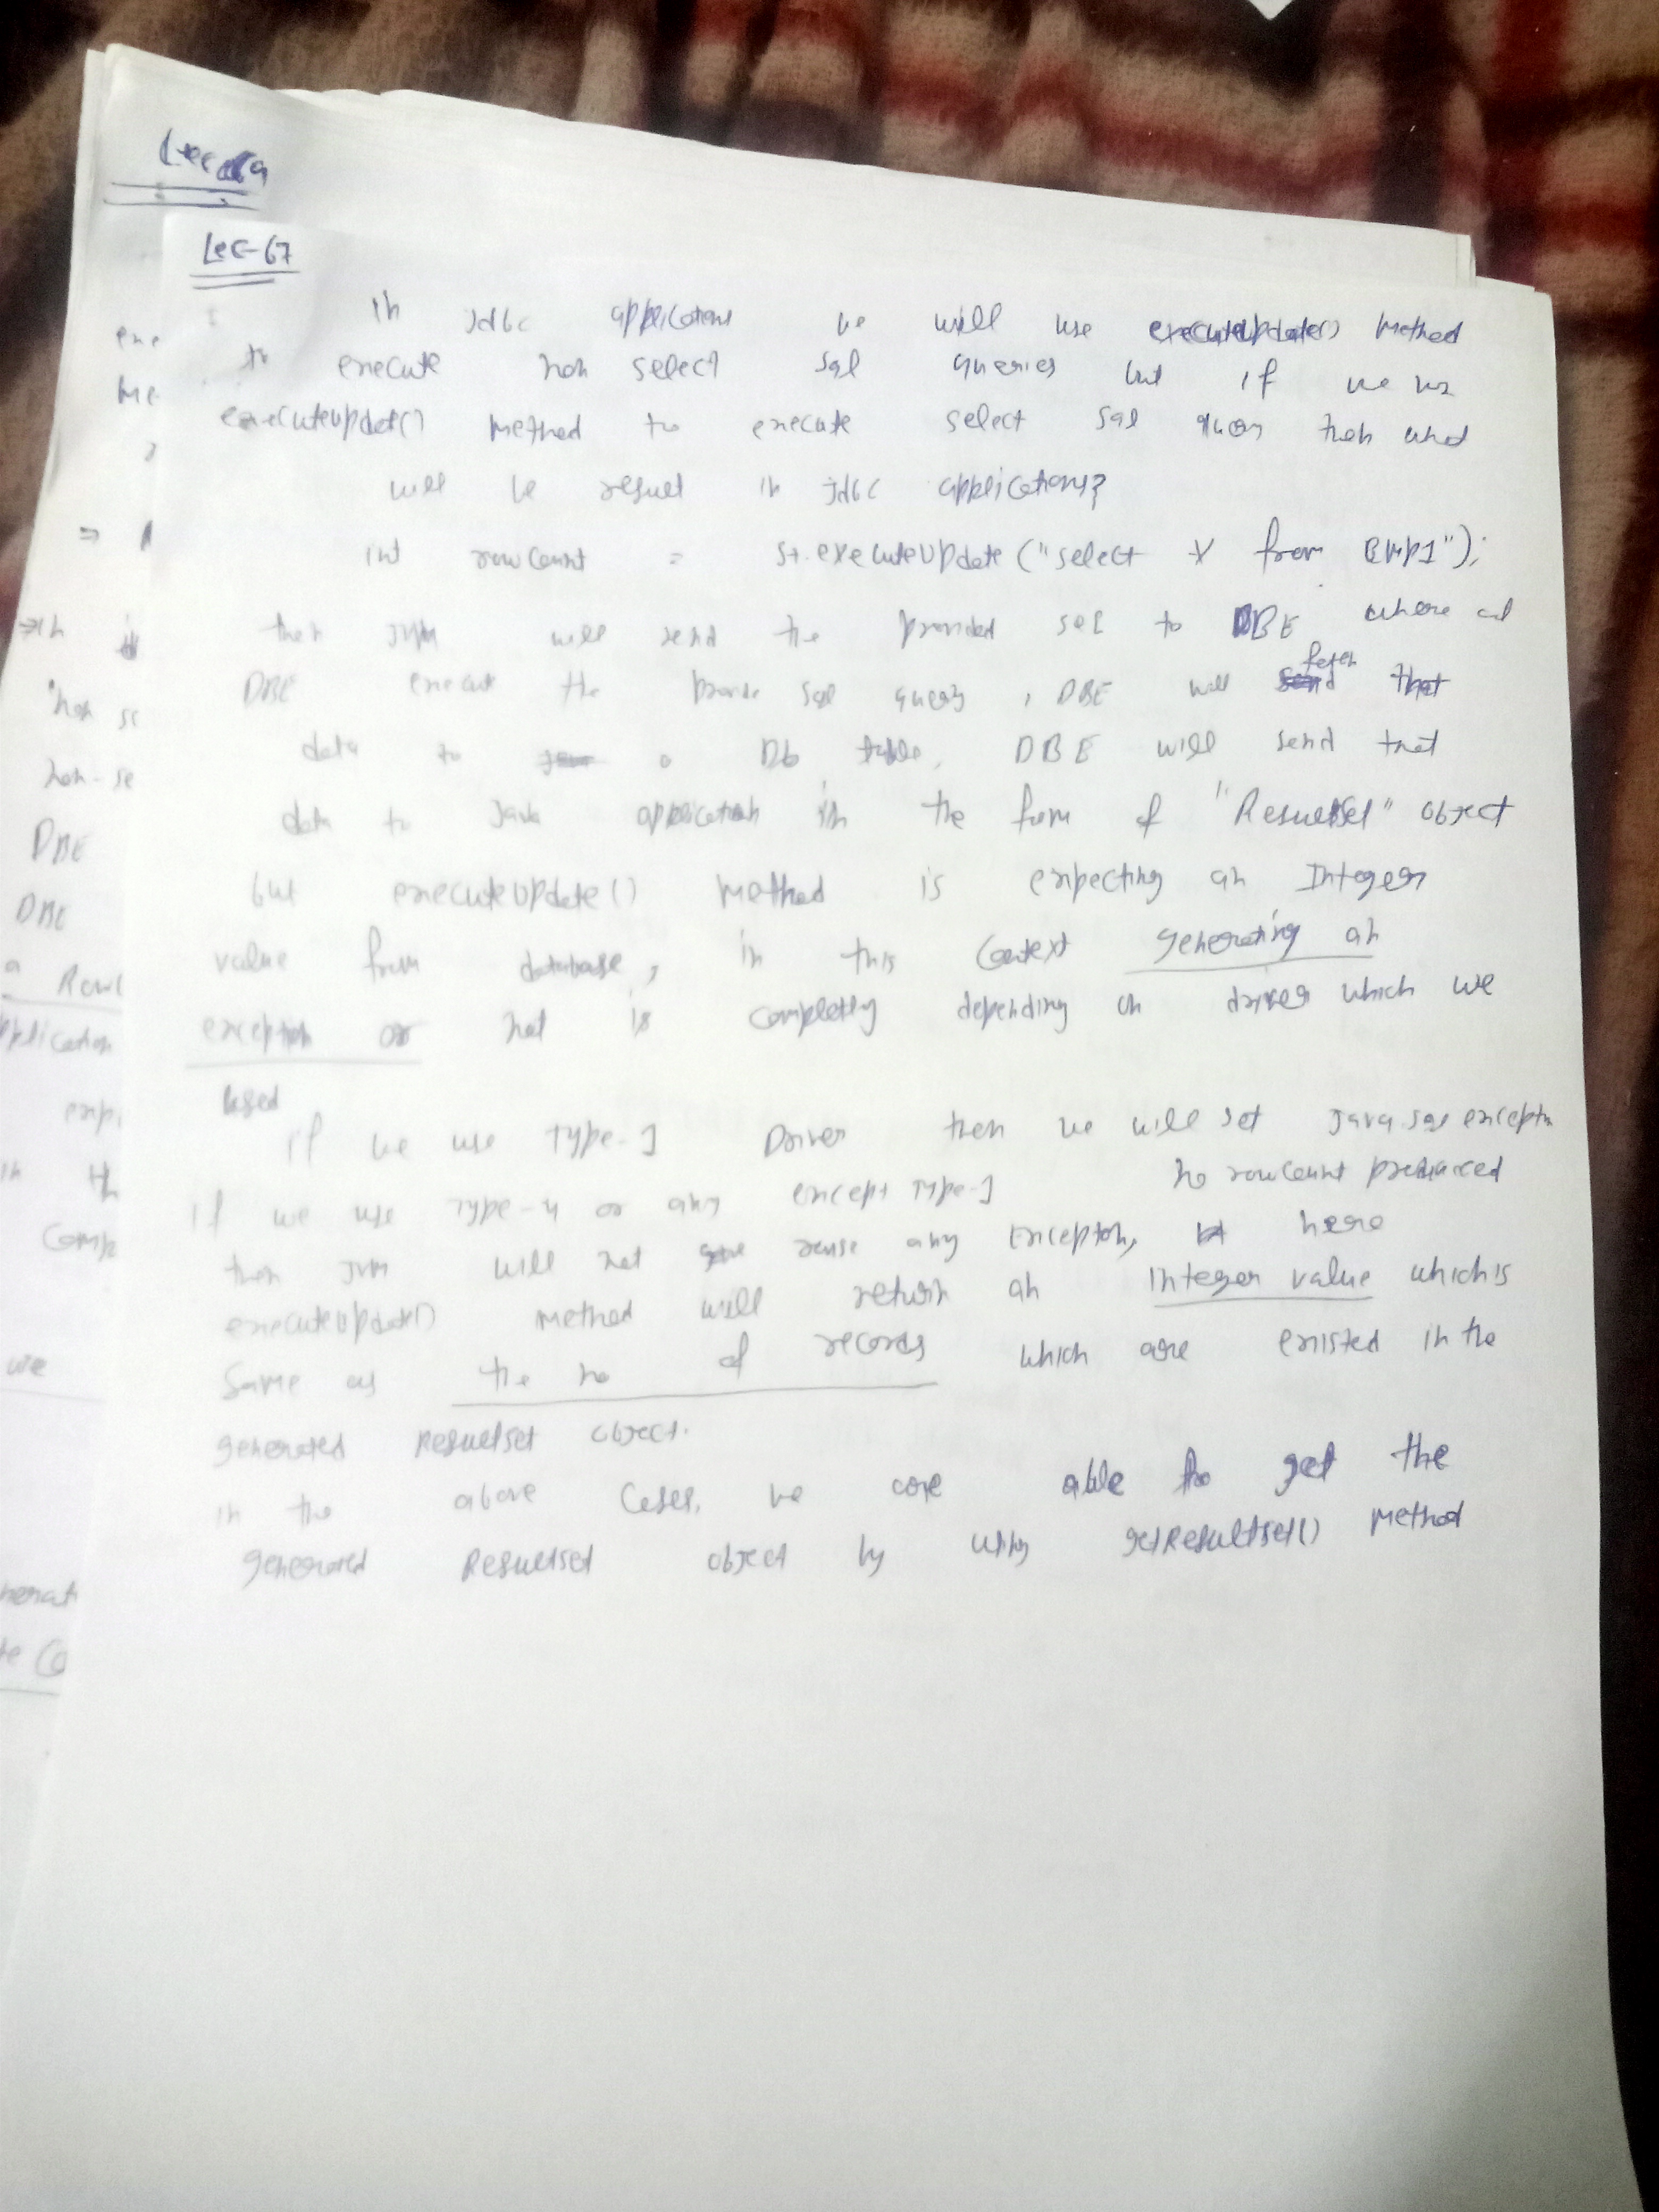 Lec-67
in Jdbc applications we will use executeUpdate() Method
to execute non select sql queries but if we use
executeUpdate() Method to execute select sql query then what
will be result in jdbc applications?
int rowCount = st.executeUpdate("select * from Emp1");
then JVM will send the provided sql to DBE where
DBE execute the provide sql query, DBE will fetch that
data to a Db table, DBE will send that
data to Java application in the form of "ResultSet" object
but executeUpdate() Method is expecting an Integer
value from database, in this context generating an
exception or not is completly depending on driver which we
used
if we use Type-1 Driver then we will get java.sql exceptn
if we use Type-4 or any except Type-1 no rowCount produced
then JVM will not raise any Exception, here
executeUpdate() Method will return an integer value which is
same as the no of records which are existed in the
generated Resultset object.
in the above cases, we are able to get the
generated Resultset object by using getResultset() Method
exe
Me
non-se
DBE
DBE
a Row
pplication
we